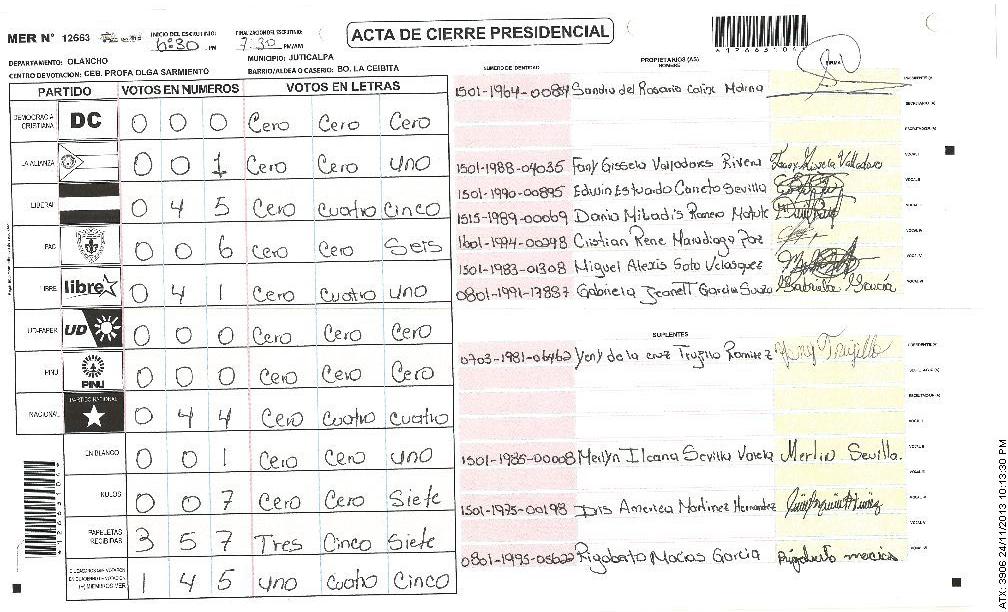 MER N° 12663
INICIO DEL ESCRUTINIO: 6:30 PM
FINALIZACION DEL ESCRUTINIO: 7:30 PM/AM
ACTA DE CIERRE PRESIDENCIAL
DEPARTAMENTO: OLANCHO
MUNICIPIO: JUTICALPA
CENTRO DE VOTACION: CEB. PROFA OLGA SARMIENTO
BARRIO/ALDEA O CASERIO: BO. LA CEIBITA
PARTIDO VOTOS EN NUMEROS VOTOS EN LETRAS
DEMOCRACIA CRISTIANA DC 0 0 0 Cero Cero Cero
LA ALIANZA 0 0 1 Cero Cero Uno
LIBERAL 0 4 5 Cero Cuatro Cinco
PAC 0 0 6 Cero Cero Seis
LIBRE libre 0 4 1 Cero Cuatro Uno
UD-FAPER UD 0 0 0 Cero Cero Cero
PINU PINU 0 0 0 Cero Cero Cero
NACIONAL PARTIDO NACIONAL 0 4 4 Cero Cuatro Cuatro
EN BLANCO 0 0 1 Cero Cero Uno
NULOS 0 0 7 Cero Cero Siete
PAPELETAS RECIBIDAS 3 5 7 Tres Cinco Siete
1 4 5 Uno Cuatro Cinco
NUMERO DE IDENTIDAD
PROPIETARIOS (AS)
NOMBRE
FIRMA
1501-1964-0084 Sandra del Rosario Calix Molina
PRESIDENTE (A)
SECRETARIO (A)
ESCRUTADOR (A)
1501-1988-04035 Fany Gissela Valladares Rivera
1501-1990-00895 Edwin Estuardo Sevilla
1515-1989-00069
1601-1994-00298 Cristian Rene
1501-1983-01308 Miguel Alexis Soto Velasquez
0801-1991-17837 Gabriela Garcia Gabriela Garcia
SUPLENTES
0703-1981-06462 Yeny de la cruz Trujillo Ramirez Yeny Trujillo
1501-1985-00008 Merlyn Ileana Sevilla Varela Merlin Sevilla.
1501-1975-00198 Iris America Martinez Hernandez
0801-1995-05622 Rigoberto Macias Garcia Rigoberto macias
ATX: 3906 24/11/2013 10:13:30 PM